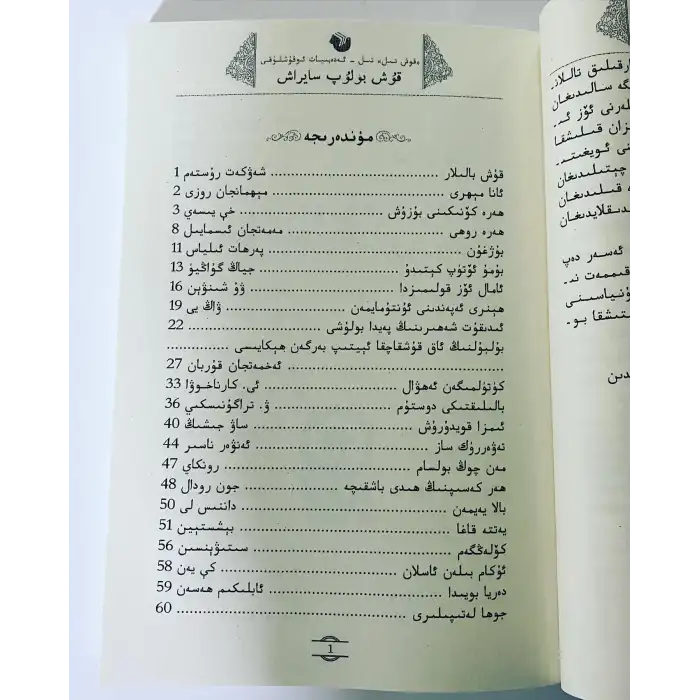 «قوش تىل» تىل - ئەدەبىيات ئوقۇشلۇقى
قۇش بولۇپ سايراش
مۇندەرىجە
قۇش بالىلار ........ شەۋكەت رۇستەم 1
ئانا مېھرى ........ مېھمانجان روزى 2
ھەرە كۆنىكىنى بۇزۇش ........ خې يىسەي 3
ھەرە روھى ........ مەمەتجان ئىسمايىل 8
بۇژغۇن ........ پەرھات ئىلياس 11
بۇمۇ ئۆتۈپ كېتىدۇ ........ جياڭ گۇاڭيۇ 13
ئامال ئۆز قولىمىزدا ........ ۋۇ شىنۋېن 16
ھېنرى ئەپەندىنى ئۇنتۇمايمەن ........ ۋاڭ يى 19
ئىدىقۇت شەھىرىنىڭ پەيدا بولۇشى ........ 22
بۇلبۇلنىڭ ئاق قۇشقاچقا ئېيتىپ بەرگەن ھېكايىسى ........
........ ئەخمەتجان قۇربان 27
كۈتۈلمىگەن ئەھۋال ........ ئى. كارناخوۋا 33
بالىلىقتىكى دوستۇم ........ ۋ. تراگۇنسكىي 36
ئىمزا قويدۇرۇش ........ ساۋ جىشىڭ 40
تەۋەررۈك ساز ........ ئەنۋەر ناسىر 44
مەن چوڭ بولسام ........ رونكاي 47
ھەر كەسىپنىڭ ھىدى باشقىچە ........ جون رودال 48
بالا يەيمەن ........ داننىس لى 50
يەتتە قاغا ........ بېشستېين 51
كۆلەڭگەم ........ سىتىۋېنسىن 56
ئۇكام بىلەن ئاسلان ........ كې يەن 58
دەريا بويىدا ........ ئابلىكىم ھەسەن 59
جوھا لەتىپىلىرى ........ 60
1
ارقىلىق تاللاز-
ـگە سالىدىغان
ـلەرنى ئۆز ئىـ-
ـزان قىلىشقا
ـنى ئويغىتىـ-
چېتىلىدىغان
ـە قىلىدىغان
ـدىقلايدىغان
ئەسەر دەپ
قىممەت نەـ
ـۇنياسىنى
ـتىشقا بو-
ـدىن